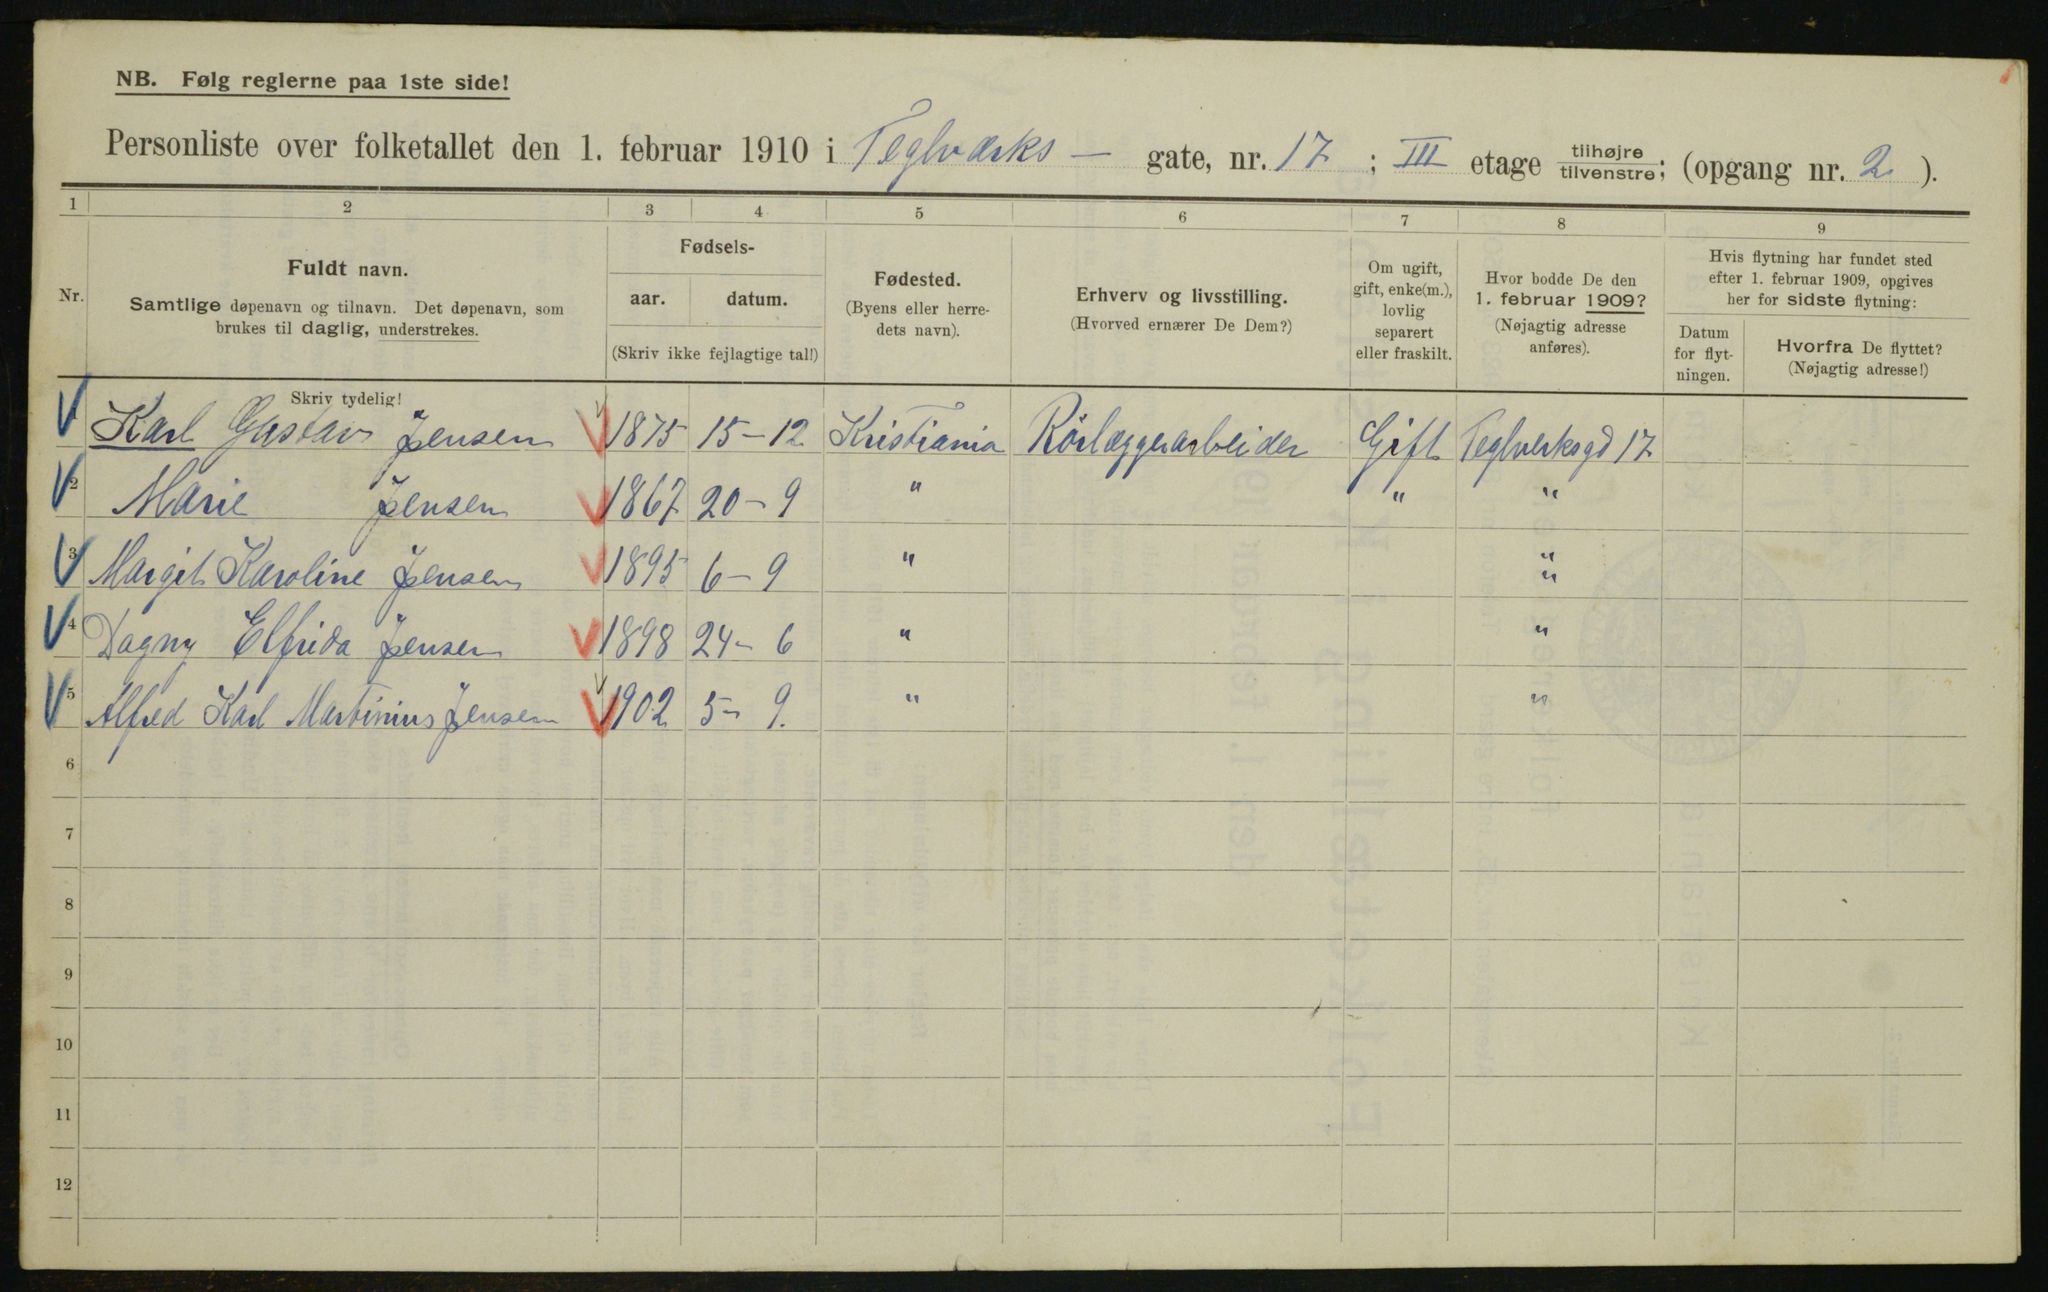 NB. Følg reglerne paa 1ste side!
Personliste over folketallet den 1. februar 1910 i Teglværks — gate, nr. 17 ; III etage tilhøjre tilvenstre; (opgang nr. 2 ).
1 2 3 4 5 6 7 8 9
Nr.
Fuldt navn.
Samtlige døpenavn og tilnavn. Det døpenavn, som
brukes til daglig, understrekes.
Fødsels-
aar. datum.
(Skriv ikke fejlagtige tal!)
Fødested.
(Byens eller herre-
dets navn).
Erhverv og livsstilling.
(Hvorved ernærer De Dem?)
Om ugift,
gift, enke(m.),
lovlig
separert
eller fraskilt.
Hvor bodde De den
1. februar 1909?
(Nøjagtig adresse
anføres).
Hvis flytning har fundet sted
efter 1. februar 1909, opgives
her for sidste flytning:
Datum
for flyt-
ningen.
Hvorfra De flyttet?
(Nøjagtig adresse!)
Skriv tydelig!
Karl Gustav Jensen 1875 15-12 Kristiania Rörlæggerarbeider Gift Teglverksgd 17
2 Marie Jensen 1867 20-9 " " "
3 Margit Karoline Jensen 1895 6-9 " " "
4 Dagny Elfrida Jensen 1898 24-6 " "
5 Alfred Karl Martinius Jensen 1902 5-9. " "
6
7
8
9
10
11
12